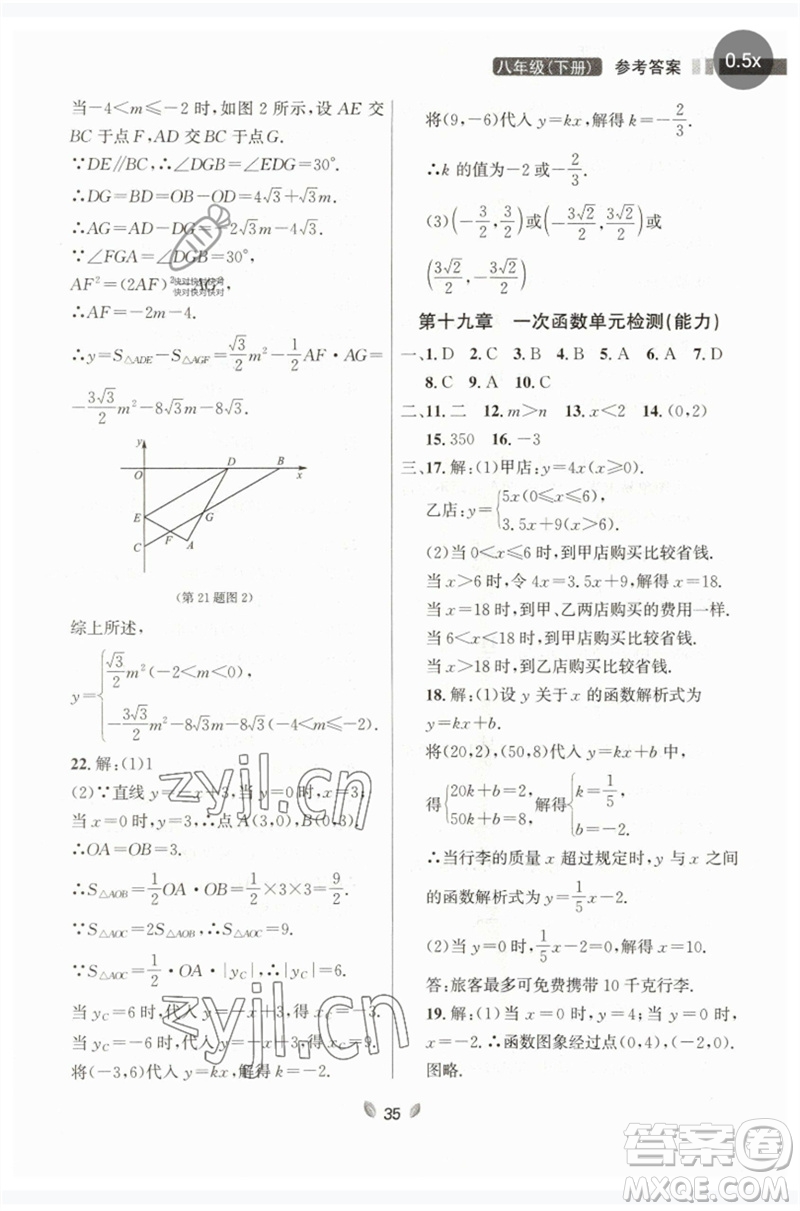 八年级(下册) 参考答案
0.5x
当－4＜m≤－2 时,如图 2 所示,设 AE 交
BC 于点 F,AD 交 BC 于点 G.
∵DE∥BC,∴∠DGB=∠EDG=30°.
∴DG=BD=OB－OD=4√3+√3m.
∴AG=AD－DG=－4√3－3√3m.
∵∠FGA=∠DGB=30°,
AF²=(2AF)²－AG²,
快对快对快对
快对快对快对
∴AF=－2m－4.
∴y=S△ADE－S△AGF=√3/2 m²－1/2 AF·AG=
－3√3/2 m²－8√3m－8√3.
y
O D B x
E
G
F A
C
(第 21 题图 2)
综上所述,
y={√3/2 m²(－2＜m＜0),
－3√3/2 m²－8√3m－8√3(－4＜m≤－2).
22. 解:(1)1
(2)∵直线 y=－x+3,当 y=0 时,x=3;
当 x=0 时,y=3,∴点 A(3,0),B(0,3).
∴OA=OB=3.
∴S△AOB=1/2 OA·OB=1/2×3×3=9/2.
∵S△AOC=2S△AOB,∴S△AOC=9.
∵S△AOC=1/2·OA·|yC|,∴|yC|=6.
当 yC=6 时,代入 y=－x+3,得 x=－3.
当 yC=－6 时,代入 y=－x+3,得 x=9.
将(－3,6)代入 y=kx,解得 k=－2.
将(9,－6)代入 y=kx,解得 k=－2/3.
∴k 的值为－2 或－2/3.
(3)(－3/2,3/2)或(－3√2/2,3√2/2)或
(3√2/2,－3√2/2)
第十九章 一次函数单元检测(能力)
一、1. D 2. C 3. B 4. B 5. A 6. A 7. D
8. C 9. A 10. C
二、11. 二 12. m＞n 13. x＜2 14. (0,2)
15. 350 16. －3
三、17. 解:(1)甲店:y=4x(x≥0);
乙店:y={5x(0≤x≤6),
3.5x+9(x＞6).
(2)当 0＜x≤6 时,到甲店购买比较省钱.
当 x＞6 时,令 4x=3.5x+9,解得 x=18.
当 x=18 时,到甲、乙两店购买的费用一样.
当 6＜x＜18 时,到甲店购买比较省钱.
当 x＞18 时,到乙店购买比较省钱.
18. 解:(1)设 y 关于 x 的函数解析式为
y=kx+b.
将(20,2),(50,8)代入 y=kx+b 中,
得{20k+b=2, 50k+b=8, 解得{k=1/5, b=－2.
∴当行李的质量 x 超过规定时,y 与 x 之间
的函数解析式为 y=1/5x－2.
(2)当 y=0 时,1/5x－2=0,解得 x=10.
答:旅客最多可免费携带 10 千克行李.
19. 解:(1)当 x=0 时,y=4;当 y=0 时,
x=－2. ∴函数图象经过点(0,4),(－2,0).
图略.
35
zyjl.cn
zyjl.cn
答案圈
MXQE.COM